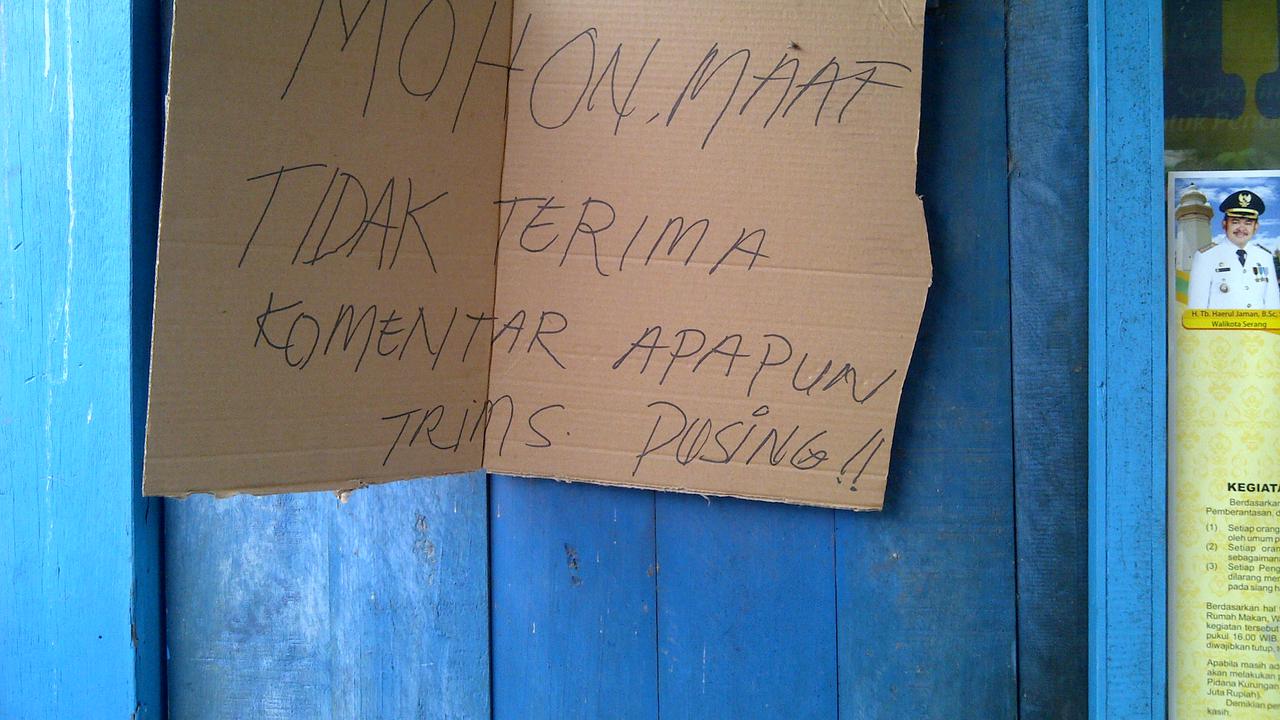 MOHON, MAAF
TIDAK TERIMA
KOMENTAR APAPUN
TRIMS. PUSING!!
H. Tb. Haerul Jaman, B.Sc,
Walikota Serang
KEGIATA
Berdasarkan
Pemberantasan, d
(1) Setiap orang
oleh umum p
(2) Setiap oran
sebagaiman
(3) Setiap Peng
dilarang me
pada siang h
Berdasarkan hal
Rumah Makan, W
kegiatan tersebut
pukul 16.00 WIB
diwajibkan tutup, t
Apabila masih ad
akan melakukan p
Pidana Kurungan
Juta Rupiah).
Demikian per
kasih.